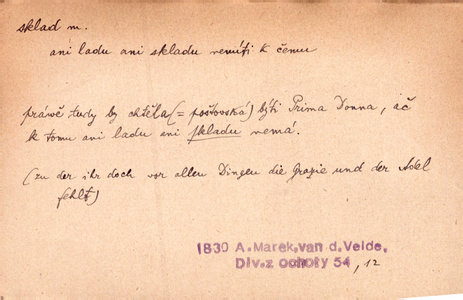 sklad m.
ani ladu ani skladu nemíti k čemu
právě tudy by chtěla (= poštovská) býti Prima Donna, ač
k tomu ani ladu ani skladu nemá.
(zu der ihr doch vor allen Dingen die Grazie und der Adel
fehlt)
1830 A. Marek, van d. Velde,
Div. z ochoty 54, 12